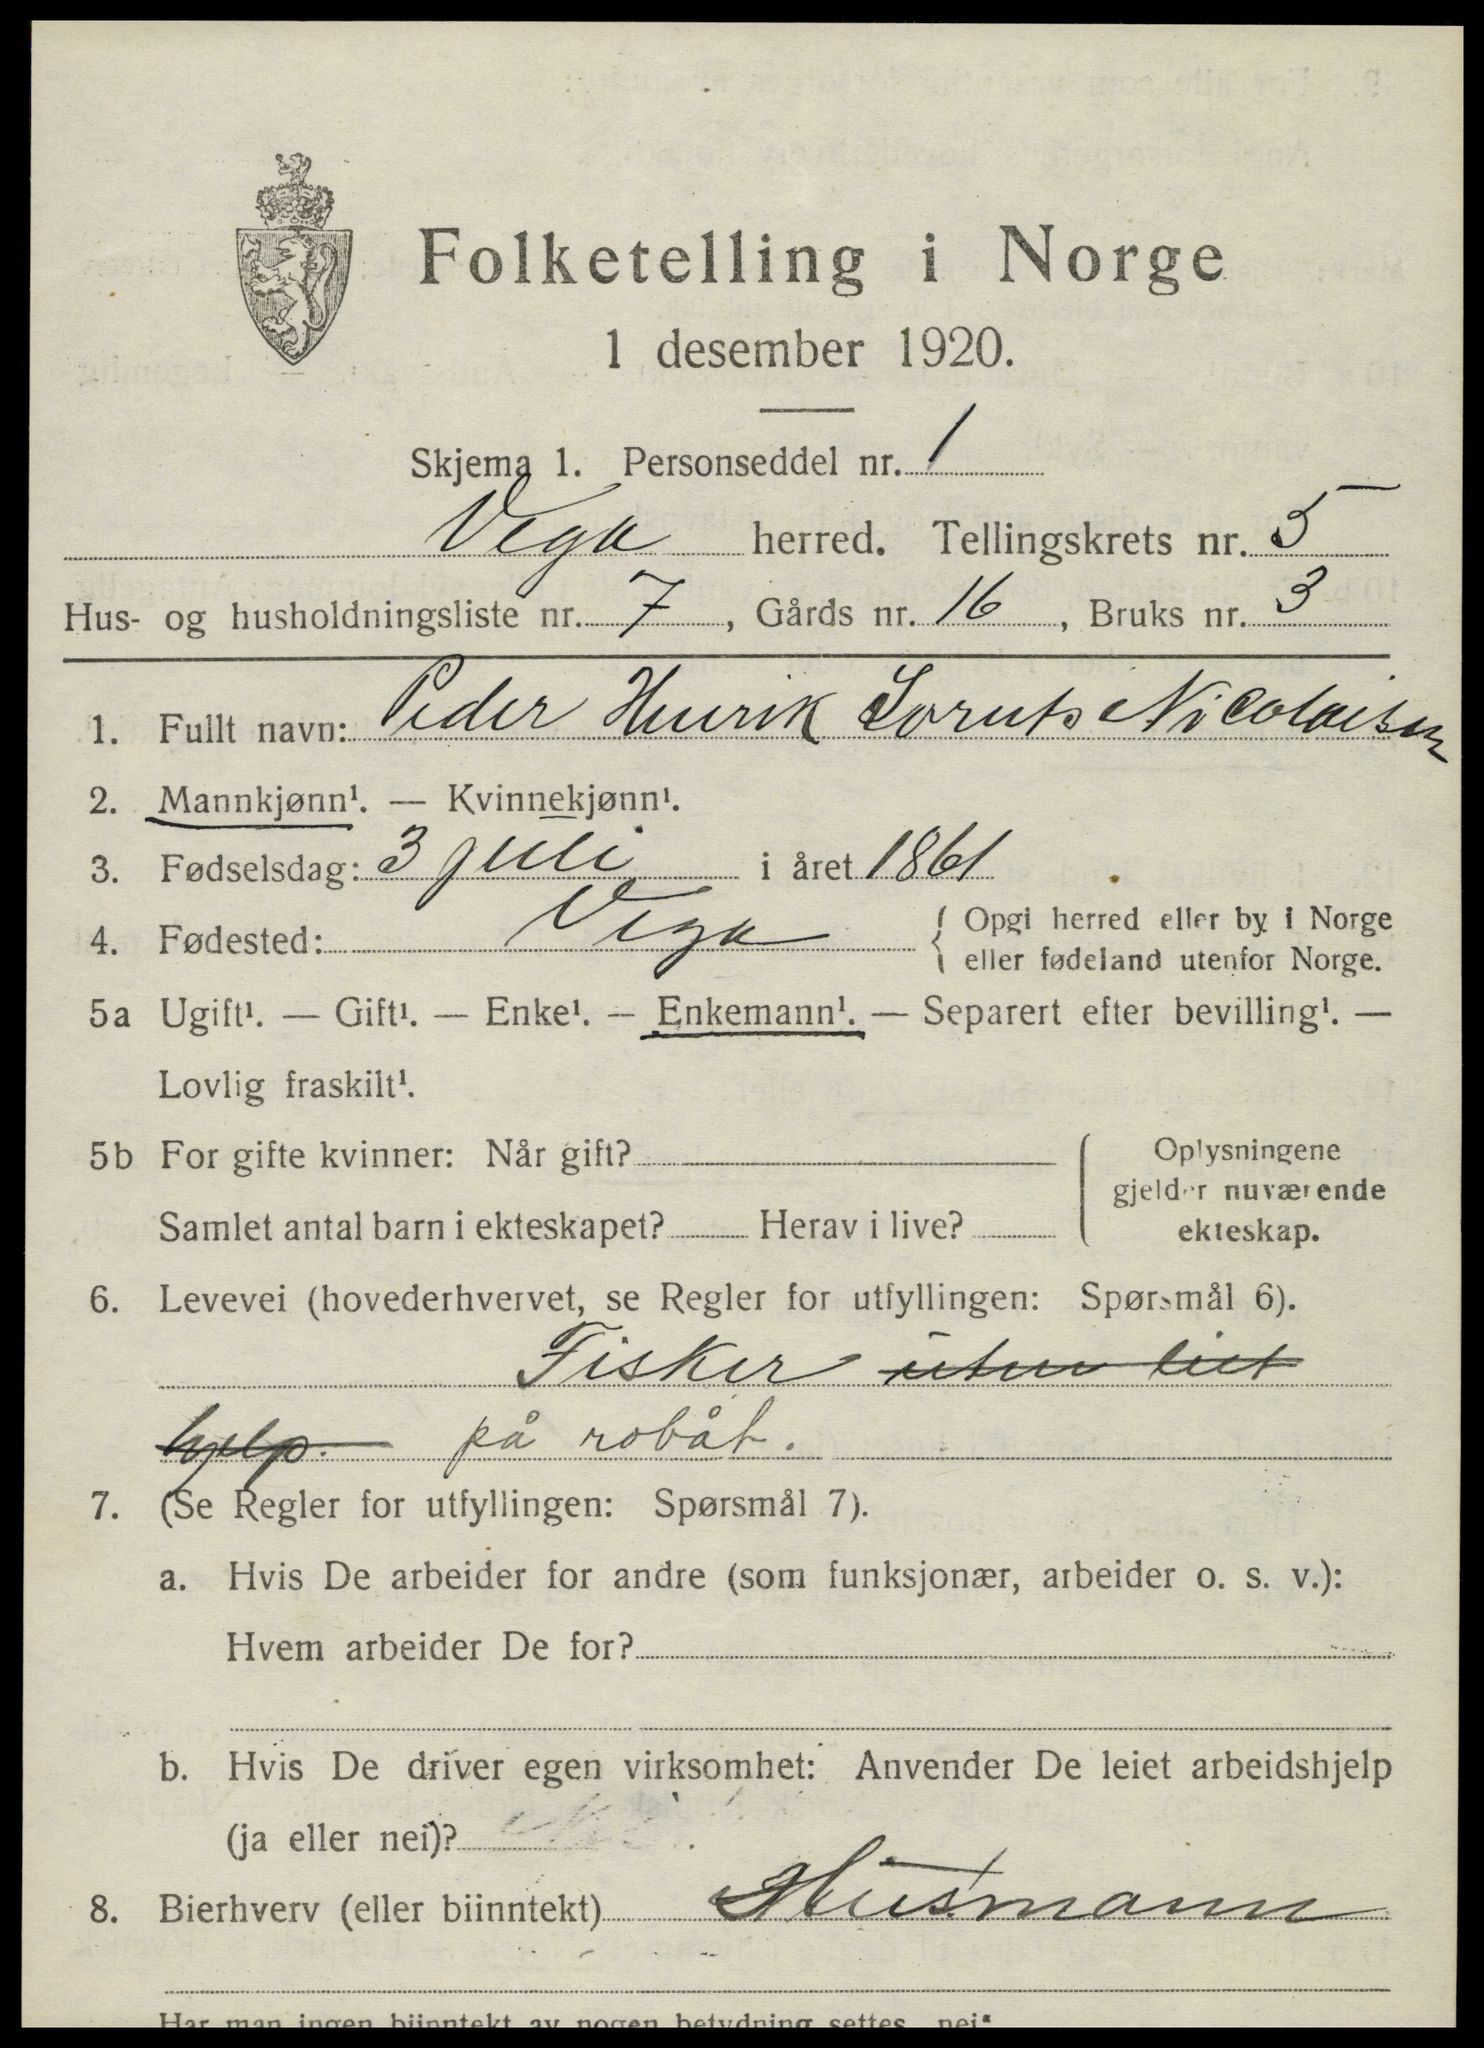 Folketelling i Norge
1 desember 1920.
Skjema 1. Personseddel nr. 1
Vega herred. Tellingskrets nr. 5
Hus- og husholdningsliste nr. 7, Gårds nr. 16, Bruks nr. 3
1. Fullt navn: Peder Henrik Lornts Nicolaisen
2. Mannkjønn¹. — Kvinnekjønn¹.
3. Fødselsdag: 3 juli i året 1861
4. Fødested: Vega { Opgi herred eller by i Norge
eller fødeland utenfor Norge.
5a Ugift¹. — Gift¹. — Enke¹. — Enkemann¹. — Separert efter bevilling¹. —
Lovlig fraskilt¹.
5b For gifte kvinner: Når gift?
Samlet antal barn i ekteskapet? Herav i live?
Oplysningene
gjelder nuværende
ekteskap.
6. Levevei (hovederhvervet, se Regler for utfyllingen: Spørsmål 6).
Fisker uten leiet
hjelp. på robåt.
7. (Se Regler for utfyllingen: Spørsmål 7).
a. Hvis De arbeider for andre (som funksjonær, arbeider o. s. v.):
Hvem arbeider De for?
b. Hvis De driver egen virksomhet: Anvender De leiet arbeidshjelp
(ja eller nei)?
8. Bierhverv (eller biinntekt) Husmann
Har man ingen biinntekt av nogen betydning settes „nei“